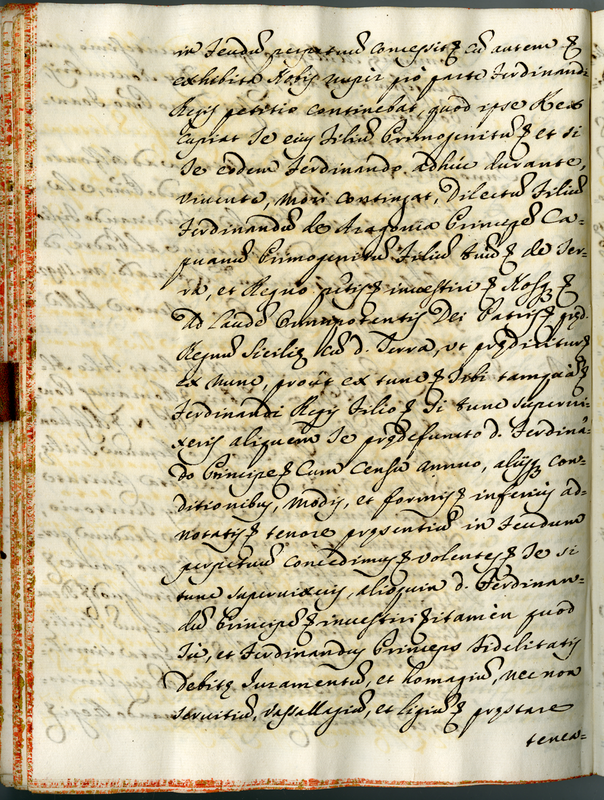 in feudũ perpetuũ concessit & cũ autem &
exhibita Nobis nuper pro parte Ferdinandi
Regis petitio continebat, quod ipse Rex
cupiat se eius filiũ Primogenitũ & et si
se eodem Ferdinando adhuc durante,
vivente, mori contingat, Dilectũ filiũ
Ferdinandũ de Aragonia Principẽ Ca=
puanũ Primogenitũ filiũ tuũ & de Ter=
ra, et Regno pñtis & investiri & Nosq; &
Ad laudẽ Omnipotentis Dei Patris & pręd.
Regnũ Sicilię cũ d. Terra, ut pręd
ex nunc, prout ex tunc & tibi tamquã &
Ferdinandi Regis filio & si tunc supervi=
xeris alioquin se prędefuncto d. Ferdinã=
do Principe & Cum censu annuo, alijsq; con=
ditionibus, modis, et formis & inferius ad=
notatis & tenore pręsentiũ in feudum
perpetuum concedimus & volentes & Te si
tunc supervixeris, alioquin d. Ferdinan=
dũ Principẽ & investiri & itamẽn quod
Tu, et Ferdinandus Princeps fidelitatis
debitę Juramentũ, et homagiũ, nec non
servitiũ, vassallagiũ, et ligiũ & pręstare
tenea=